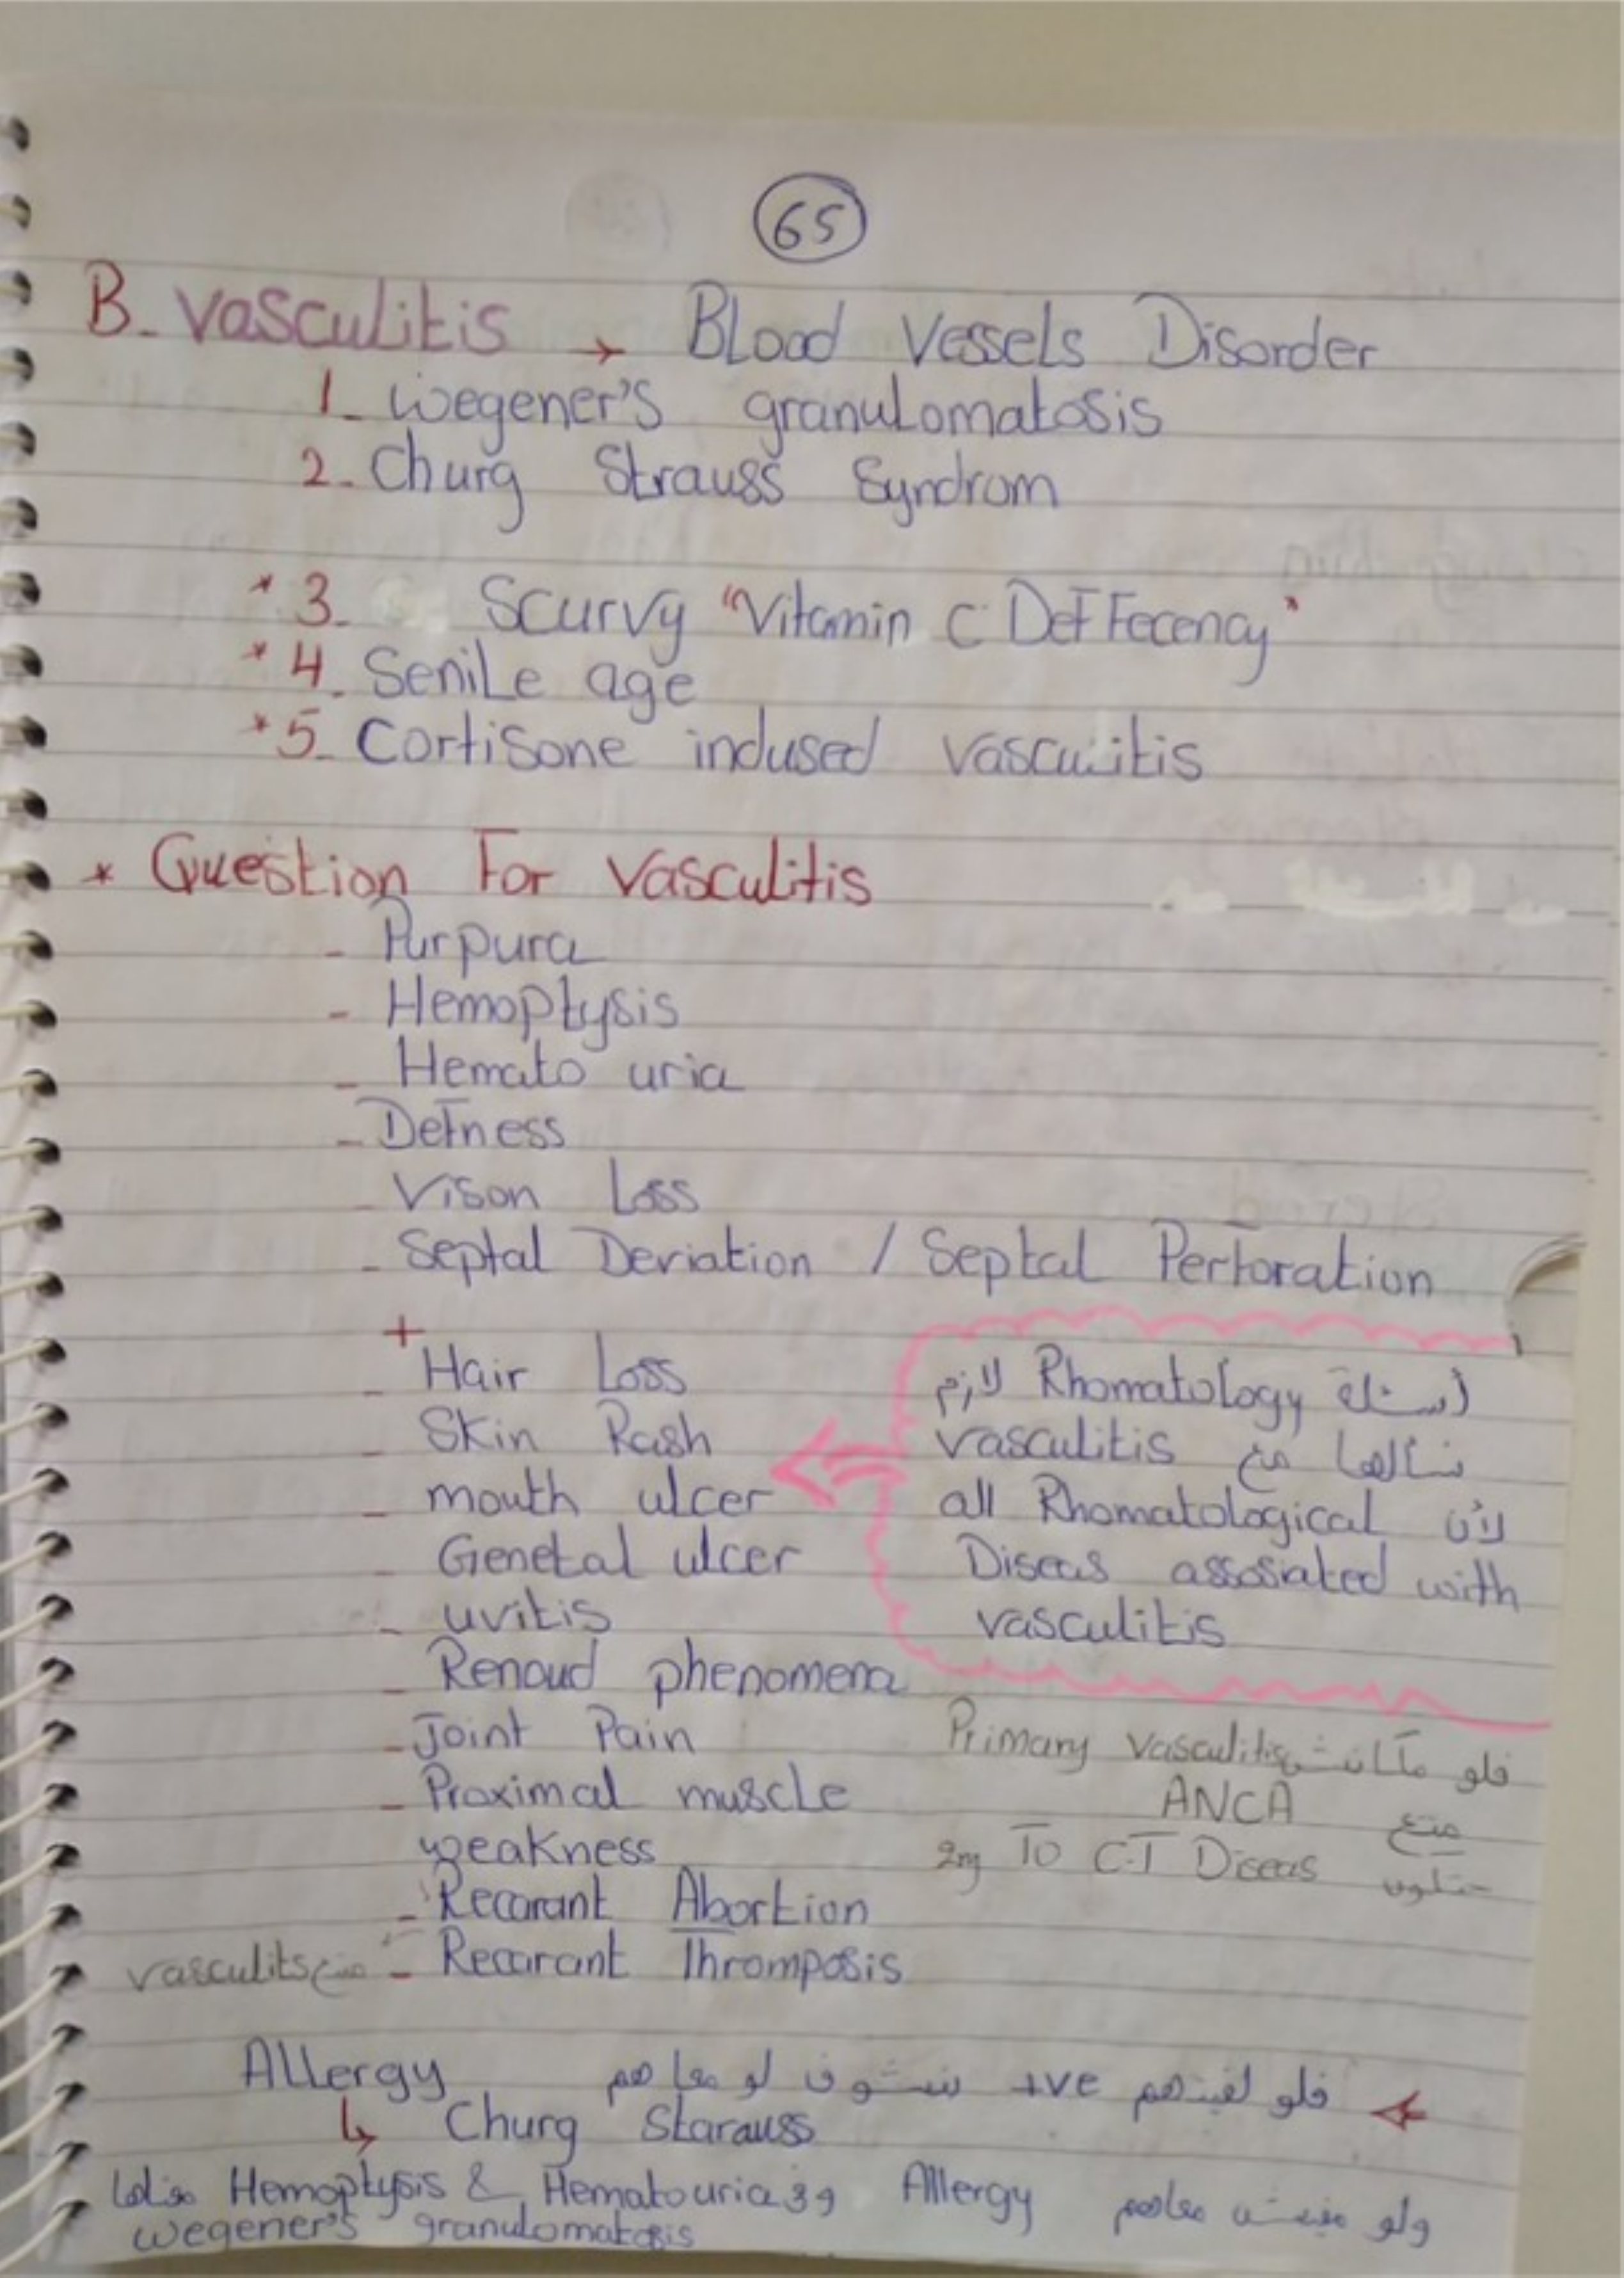 65
B- Vasculitis → Blood Vessels Disorder
1- Wegener's granulomatosis
2- Churg Strauss Syndrom
* 3- Scurvy "Vitamin C DefFecency"
* 4- Senile age
* 5- Cortisone indused vasculitis
* Question For Vasculitis
- Purpura
- Hemoptysis
- Hemato uria
- Defness
- Vison Loss
- Septal Deviation / Septal Perforation
+
- Hair Loss
- Skin Rash
- mouth ulcer
- Genetal ulcer
- uvitis
- Renoud phenomena
- Joint Pain
- Proximal muscle
weakness
- Recarant Abortion
- Recarant Thromposis
vasculits مع
أسئلة Rhomatology لازم
نسألها مع vasculitis
لأن all Rhomatological
Diseas assosiated with
vasculitis
فلو مكانتش Primary vasculitis
ANCA
To C.T Diceas
فلو لقيتهم +ve نشوف لو معاهم Allergy
↳ Churg Starauss
ولو مفيش معاهم Allergy وفي Hemoptysis & Hematouria معناها
wegener's granulomatosis